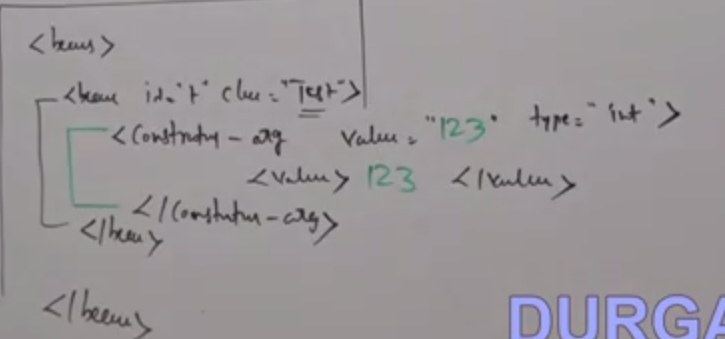 <beans>
<bean id="t" class="Test">
<constructor-arg value="123" type="int">
<value> 123 </value>
</constructor-arg>
</bean>
</beans>
DURGA